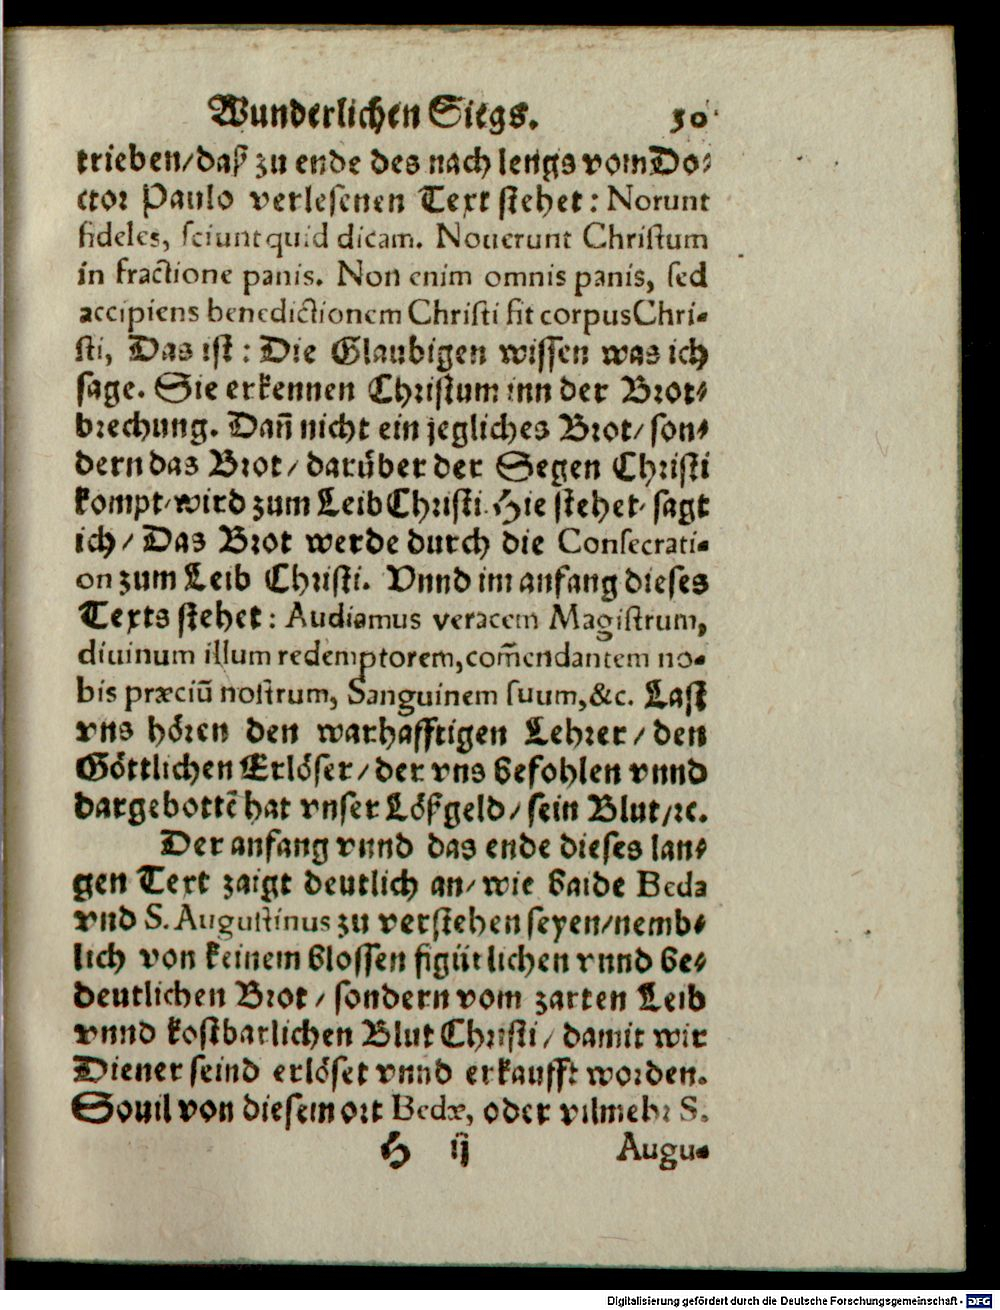 Wunderlichen Siegs. 50
trieben/daß zu ende des nach lengs vom Do⸗
ctor Paulo verlesenen Text stehet: Norunt
fideles, sciunt quid dicam. Nouerunt Christum
in fractione panis. Non enim omnis panis, sed
accipiens benedictionem Christi fit corpus Chri-
sti, Das ist: Die Glaubigen wissen was ich
sage. Sie erkennen Christum inn der Brot⸗
brechung. Dañ nicht ein jegliches Brot/ son⸗
dern das Brot/ darüber der Segen Christi
kompt/ wird zum Leib Christi. Hie stehet/ sagt
ich/ Das Brot werde durch die Consecrati-
on zum Leib Christi. Vnnd im anfang dieses
Texts stehet: Audiamus veracem Magistrum,
diuinum illum redemptorem, com̃endantem no-
bis præciũ nostrum, Sanguinem suum, &c. Last
vns hören den warhafftigen Lehrer/ den
Göttlichen Erlöser/ der vns befohlen vnnd
dargebottẽ hat vnser Lößgeld/ sein Blut/ꝛc.
Der anfang vnnd das ende dieses lan⸗
gen Text zaigt deutlich an/ wie baide Beda
vnd S. Augustinus zu verstehen seyen/nemb⸗
lich von keinem blossen figürlichen vnnd be⸗
deutlichen Brot/ sondern vom zarten Leib
vnnd kostbarlichen Blut Christi/ damit wir
Diener seind erlöset vnnd erkaufft worden.
Souil von diesem ort Bedæ, oder vilmehr S.
H ij Augu-
Digitalisierung gefördert durch die Deutsche Forschungsgemeinschaft - DFG